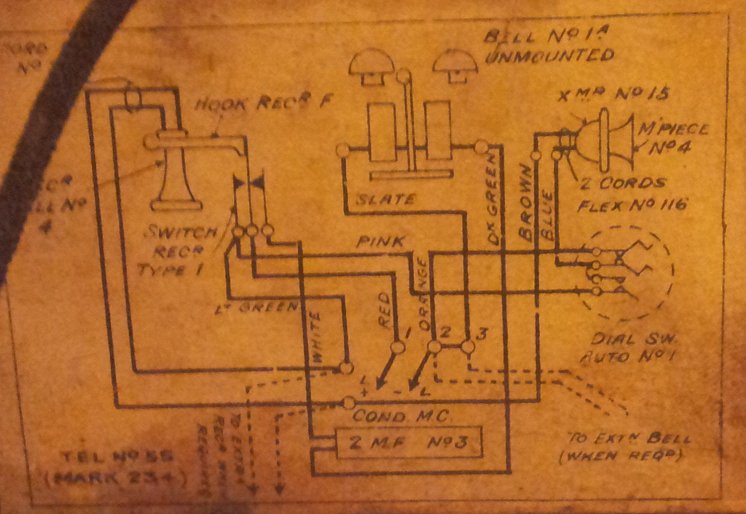 CORD
No
BELL No 1A
UNMOUNTED
HOOK RECR F
XMR No 15
M'PIECE
No 4
2 CORDS
FLEX No 116
No
4
SWITCH
RECR
TYPE 1
SLATE
PINK
DK GREEN
BROWN
BLUE
LT GREEN
WHITE
RED
ORANGE
1
2
3
DIAL SW.
AUTO No 1
L
+
-
L
COND. M.C.
2 M.F No 3
TO EXTN BELL
(WHEN REQD)
TEL No 55
(MARK 234)
TO EXTRA
RECR WHEN
REQUIRED